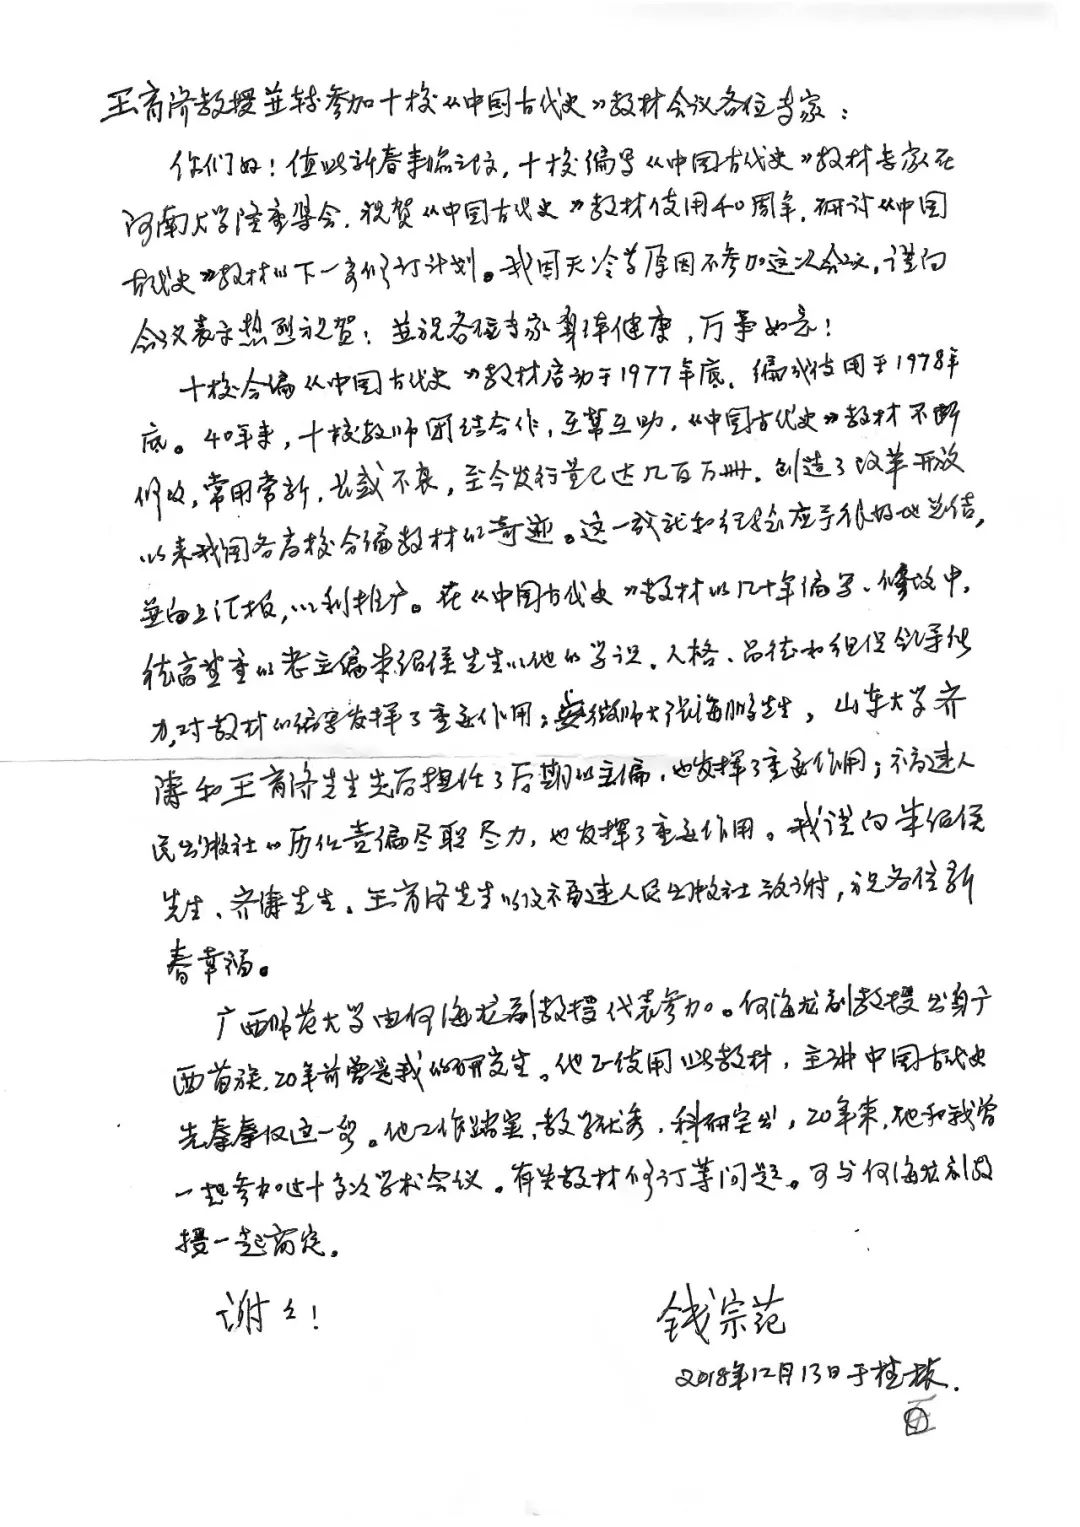 王育济教授並转参加十校《中国古代史》教材会议各位专家：
你们好！值此新春来临之设，十校编写《中国古代史》教材专家在
河南大学隆重集会，祝贺《中国古代史》教材使用40周年，研讨《中国
古代史》教材的下一步修订计划。我因天冷等原因不参加这次会议，谨向
会议表示热烈祝贺；並祝各位专家身体健康，万事如意！
十校合编《中国古代史》教材启动于1977年底，编成使用于1978年
底。40年来，十校教师团结合作，互帮互助，《中国古代史》教材不断
修改，常用常新，长盛不衰，至今发行量已达几百万册，创造了改革开放
以来我国各高校合编教材的奇迹。这一成就和经验应予很好地总结，
並向上汇报，以利推广。在《中国古代史》教材的几十年编写、修改中，
德高望重的老主编朱绍侯先生以他的学识、人格、品德和组织领导能
力，对教材的编写发挥了重要作用；安徽师大张海鹏先生，山东大学齐
涛和王育济先生先后担任了后期的主编，也发挥了重要作用；福建人
民出版社的历任责编尽职尽力，也发挥了重要作用。我谨向朱绍侯
先生、齐涛先生、王育济先生以及福建人民出版社致谢，祝各位新
春幸福。
广西师范大学由何海龙副教授代表参加。何海龙副教授出身广
西苗族，20年前曾是我的研究生。他正使用此教材，主讲中国古代史
先秦秦汉这一段。他工作踏实，教学优秀，科研突出，20年来，他和我曾
一起参加过十多次学术会议。有关教材修订等问题，可与何海龙副教
授一起商定。
谢々！
钱宗范
2018年12月13日于桂林.